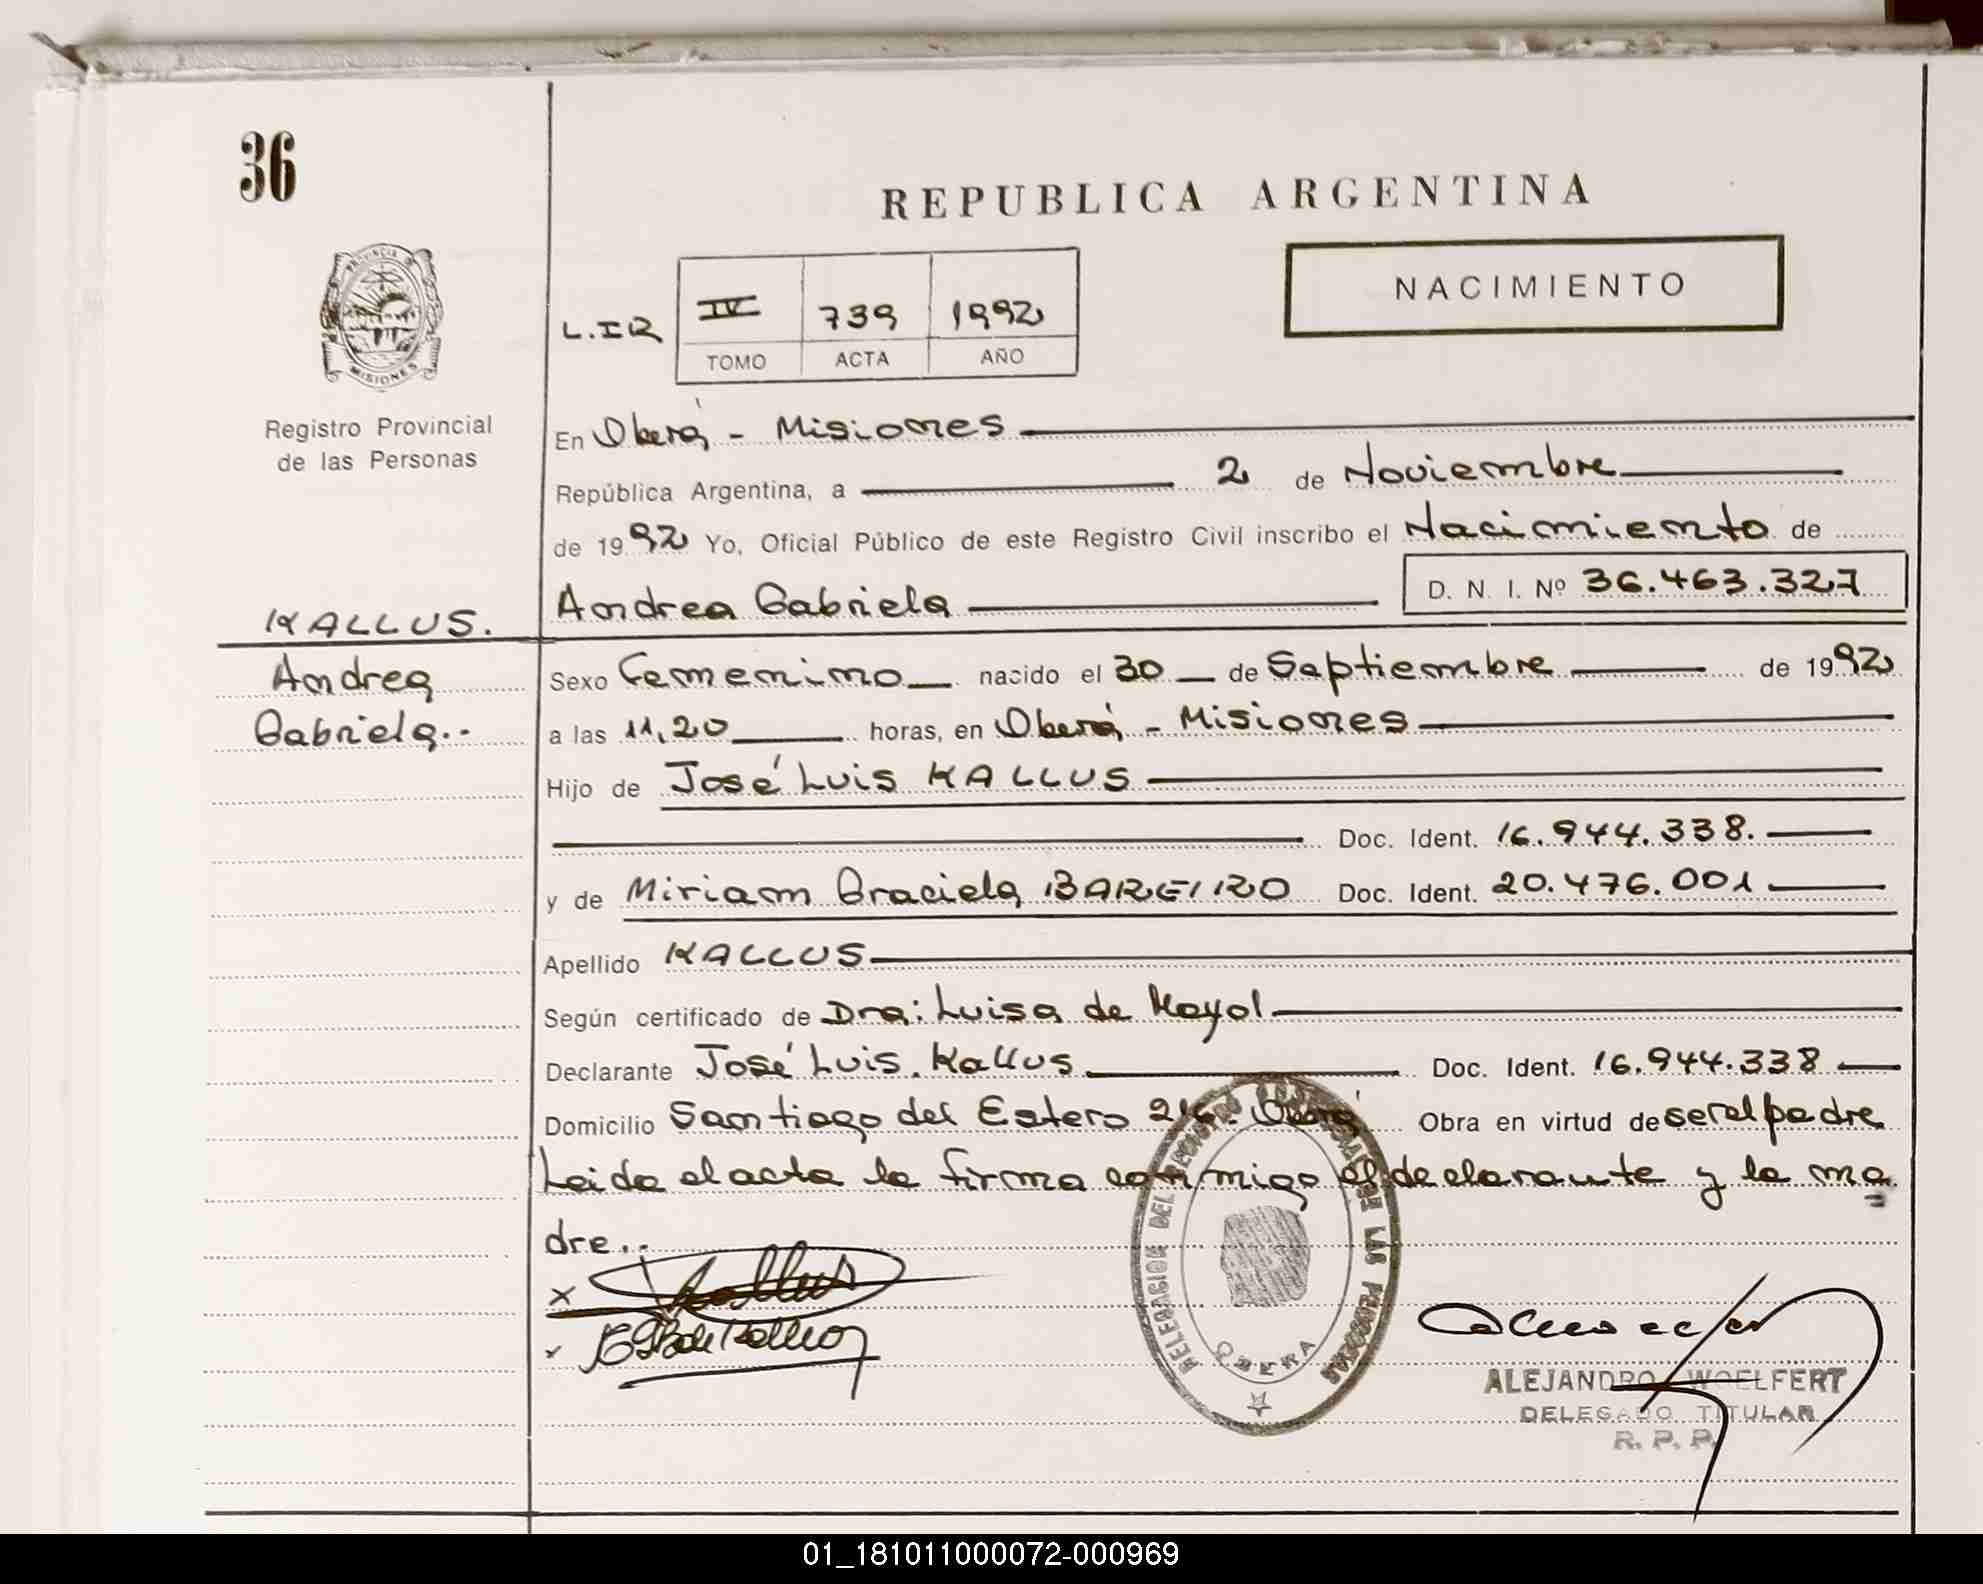 36
REPUBLICA ARGENTINA
PROVINCIA DE
MISIONES
NACIMIENTO
L.IR
IV 739 1992
TOMO ACTA AÑO
Registro Provincial
de las Personas
En Oberá - Misiones
República Argentina, a 2 de Noviembre
de 1992 Yo, Oficial Público de este Registro Civil inscribo el Nacimiento de
Andrea Gabriela D. N. I. Nº 36.463.327
KALLUS.
Andrea
Gabriela..
Sexo Femenino nacido el 30 de Septiembre de 1992
a las 11,20 horas, en Oberá - Misiones
Hijo de José Luis KALLUS
Doc. Ident. 16.944.338.
y de Miriam Graciela BAREIRO Doc. Ident. 20.476.001
Apellido KALLUS
Según certificado de Dra: Luisa de Mayol
Declarante José Luis Kallus Doc. Ident. 16.944.338
Domicilio Santiago del Estero Oberá Obra en virtud de ser el padre
Leida el acta la firma conmigo el declarante y la ma
dre..
x Kallus
x
DELEGACION DEL REGISTRO PROVINCIAL DE LAS PERSONAS
OBERA
ALEJANDRO WOELFERT
DELEGADO TITULAR
R. P. P.
01_181011000072-000969